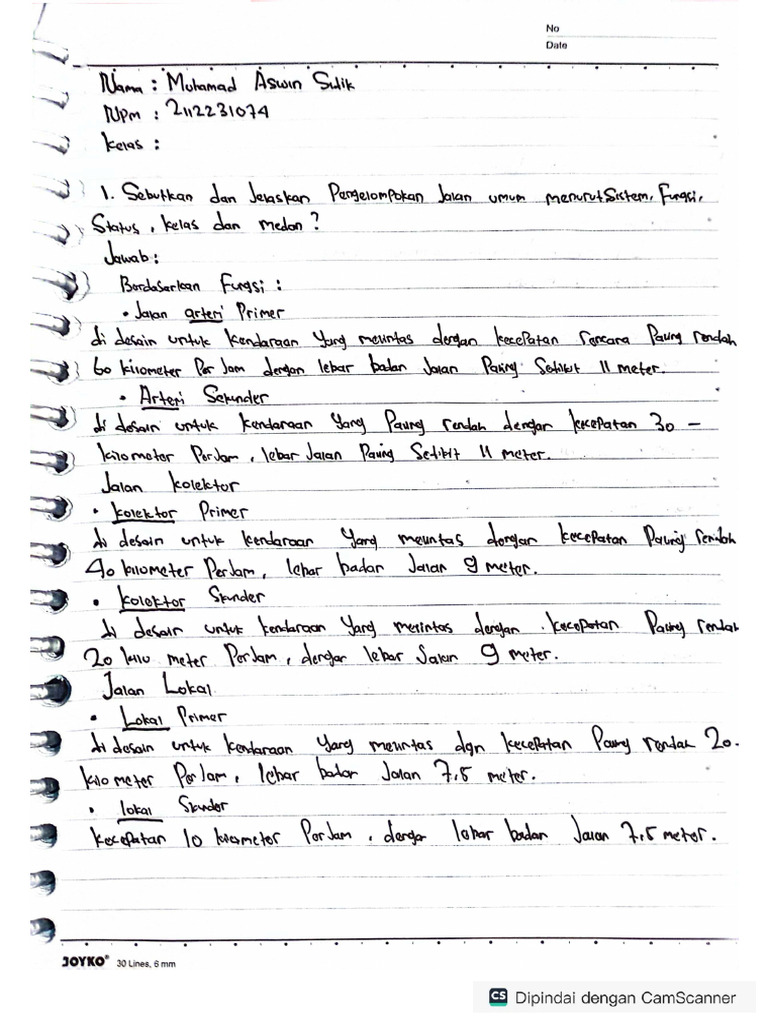 No
Date
Nama : Muhamad Aswin Sidik
NPm : 2112231074
kelas :
1. Sebutkan dan Jelaskan Pengelompokan Jalan umum menurut Sistem, Fungsi,
Status, kelas dan medan ?
Jawab :
Berdasarkan Fungsi :
• Jalan arteri Primer
di desain untuk kendaraan yang melintas dengan kecepatan rencana Paling rendah
60 kilometer Per Jam dengan lebar badan Jalan Paling Sedikit 11 meter.
• Arteri Sekunder
di desain untuk kendaraan yang Paling rendah dengan kecepatan 30 -
kilometer PerJam, lebar Jalan Paling Sedikit 11 meter.
Jalan kolektor
• kolektor Primer
di desain untuk kendaraan yang melintas dengan kecepatan Paling rendah
40 kilometer PerJam, lebar badan Jalan 9 meter.
• kolektor Skunder
di desain untuk kendaraan yang melintas dengan kecepatan Paling rendah
20 kilo meter PerJam, dengan lebar Jalan 9 meter.
Jalan Lokal
• Lokal Primer
di desain untuk kendaraan yang melintas dgn kecepatan Paling rendah 20.
kilo meter PerJam, lebar badan Jalan 7,5 meter.
• lokal Skunder
kecepatan 10 kilometer PerJam, dengan lebar badan Jalan 7,5 meter.
JOYKO® 30 Lines, 6 mm
CS Dipindai dengan CamScanner